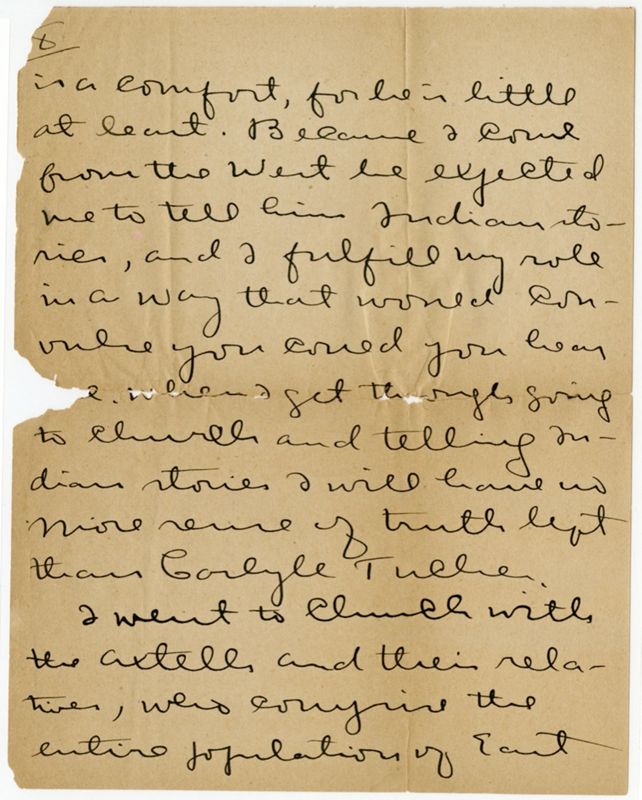 is a comfort, for he is little
at least. Because I come
from the West he expected
me to tell him Indian sto-
ries, and I fulfill my role
in a way that would con-
vulse you could you hear
e. when I get through going
to church and telling In-
dian stories I will have no
more sense of truth left
than Carlyle Tucker.
I went to church with
the Axtells and their rela-
tives, who comprise the
entire population of East